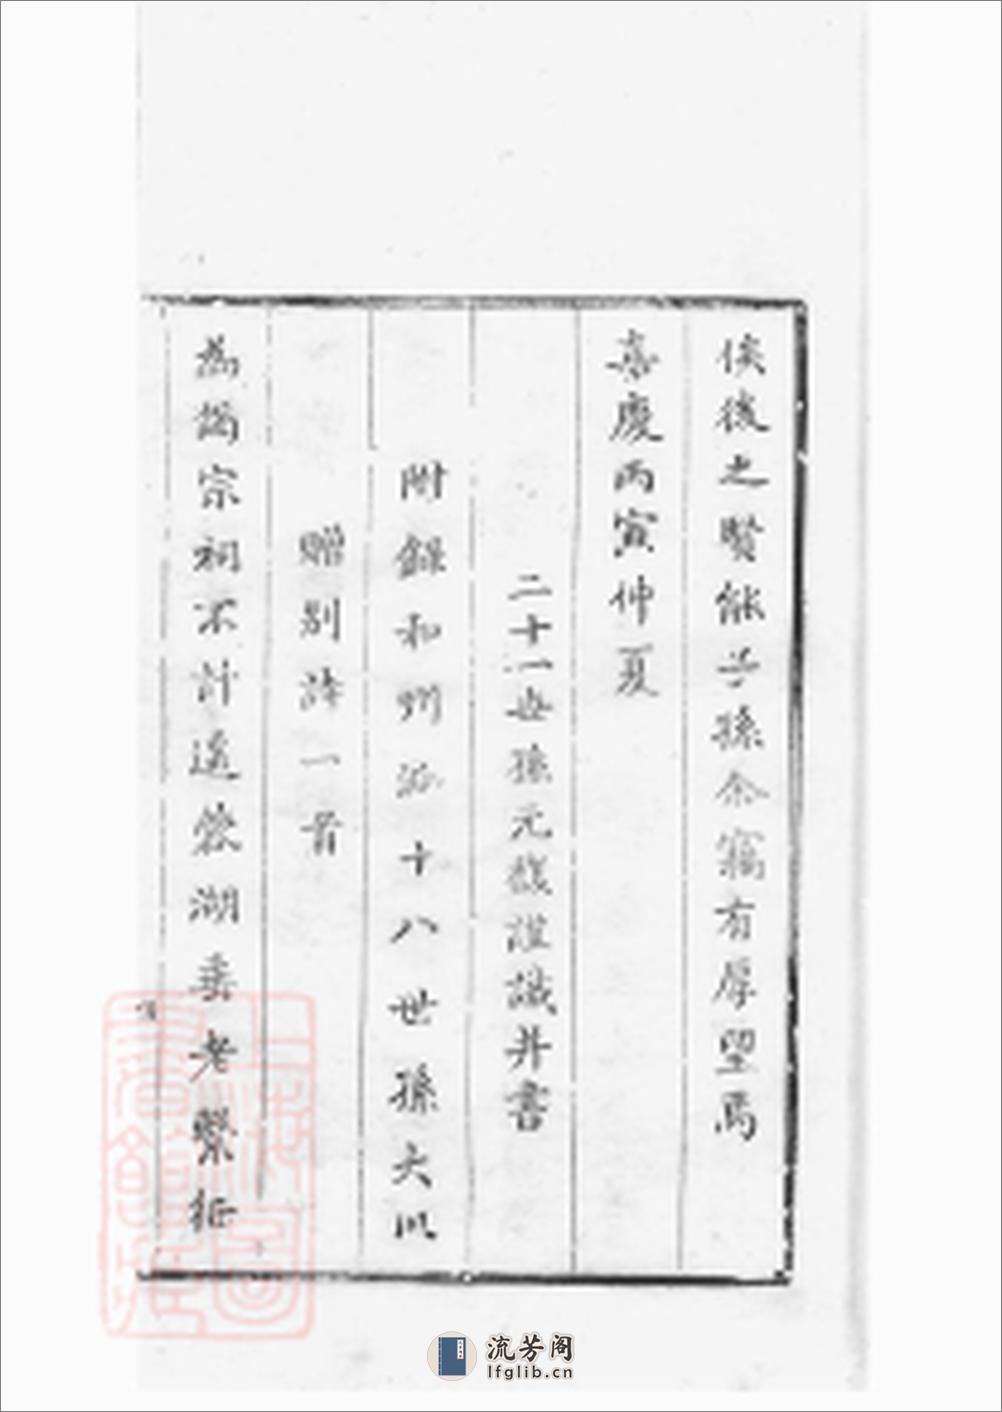 俟後之賢能子孫余竊有厚望焉
嘉慶丙寅仲夏
二十一世孫元馥謹識并書
附錄和州派十八世孫大以
贈別詩一首
為謁宗祠不計遙蓉湖垂老繫征
流芳阁
lfglib.cn